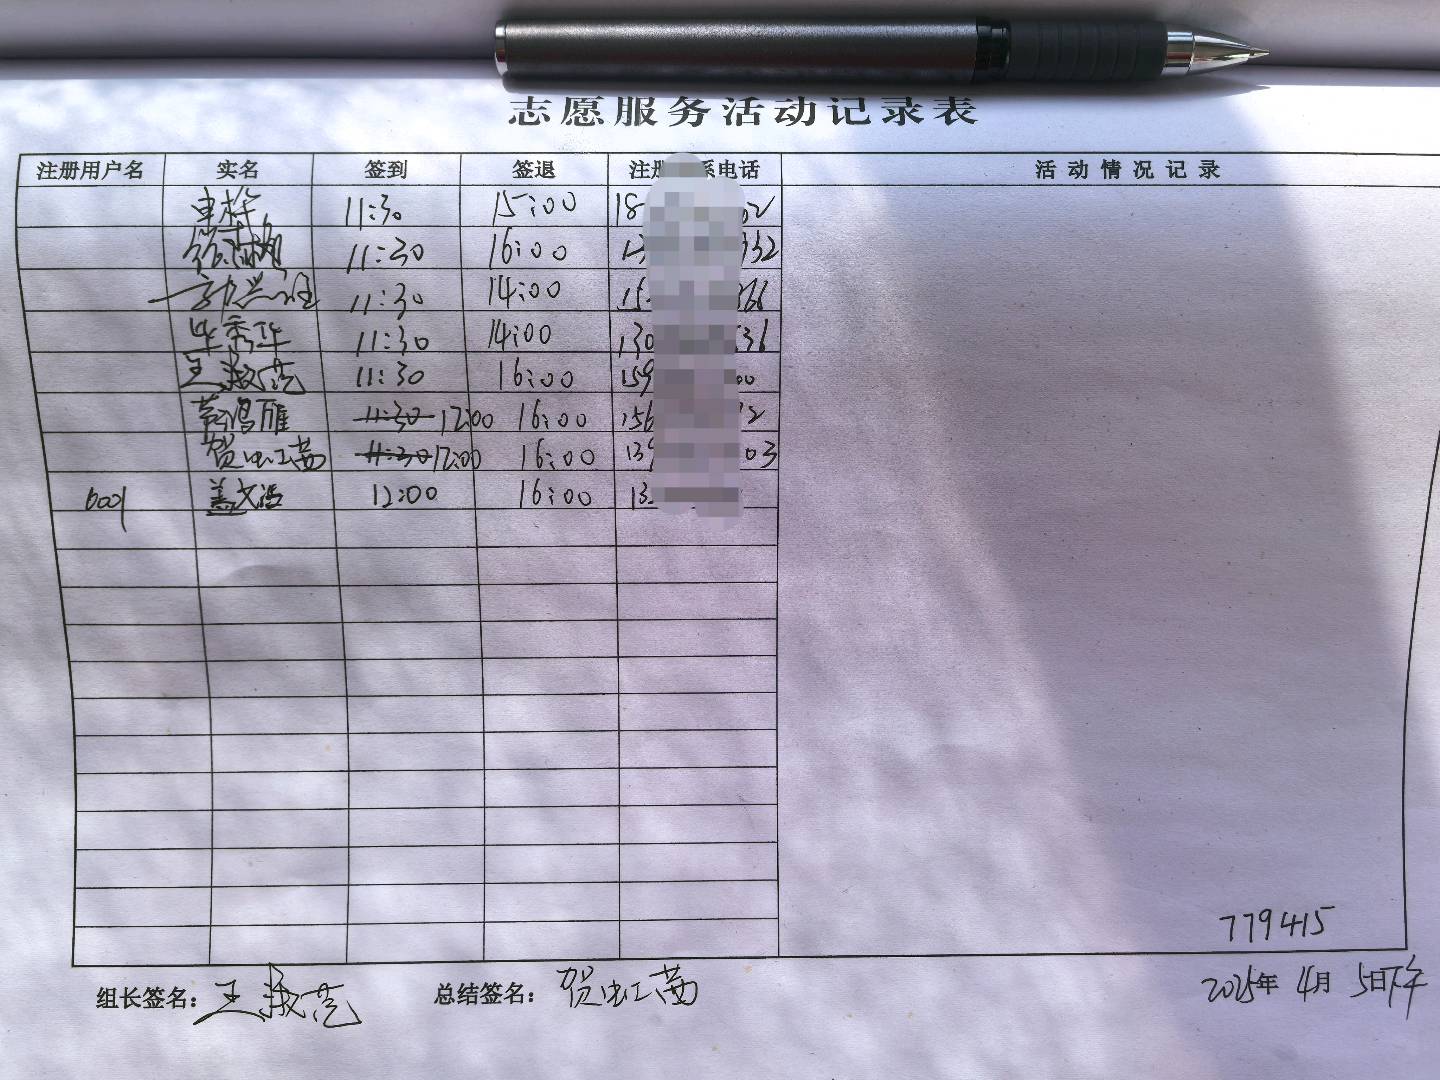 志愿服务活动记录表
注册用户名 实名 签到 签退 注册 系电话 活动情况记录
11:30 15:00 18
11:30 16:00 332
11:30 14:00 15 366
毕秀华 11:30 14:00 130 36
王淑范 11:30 16:00 159 00
鸿雁 11:30 12:00 16:00 156 2
贺虹茜 11:30 12:00 16:00 139 03
盖文浩 12:00 16:00 13
779415
组长签名: 王淑范 总结签名: 贺虹茜 2025年 4月 5日下午